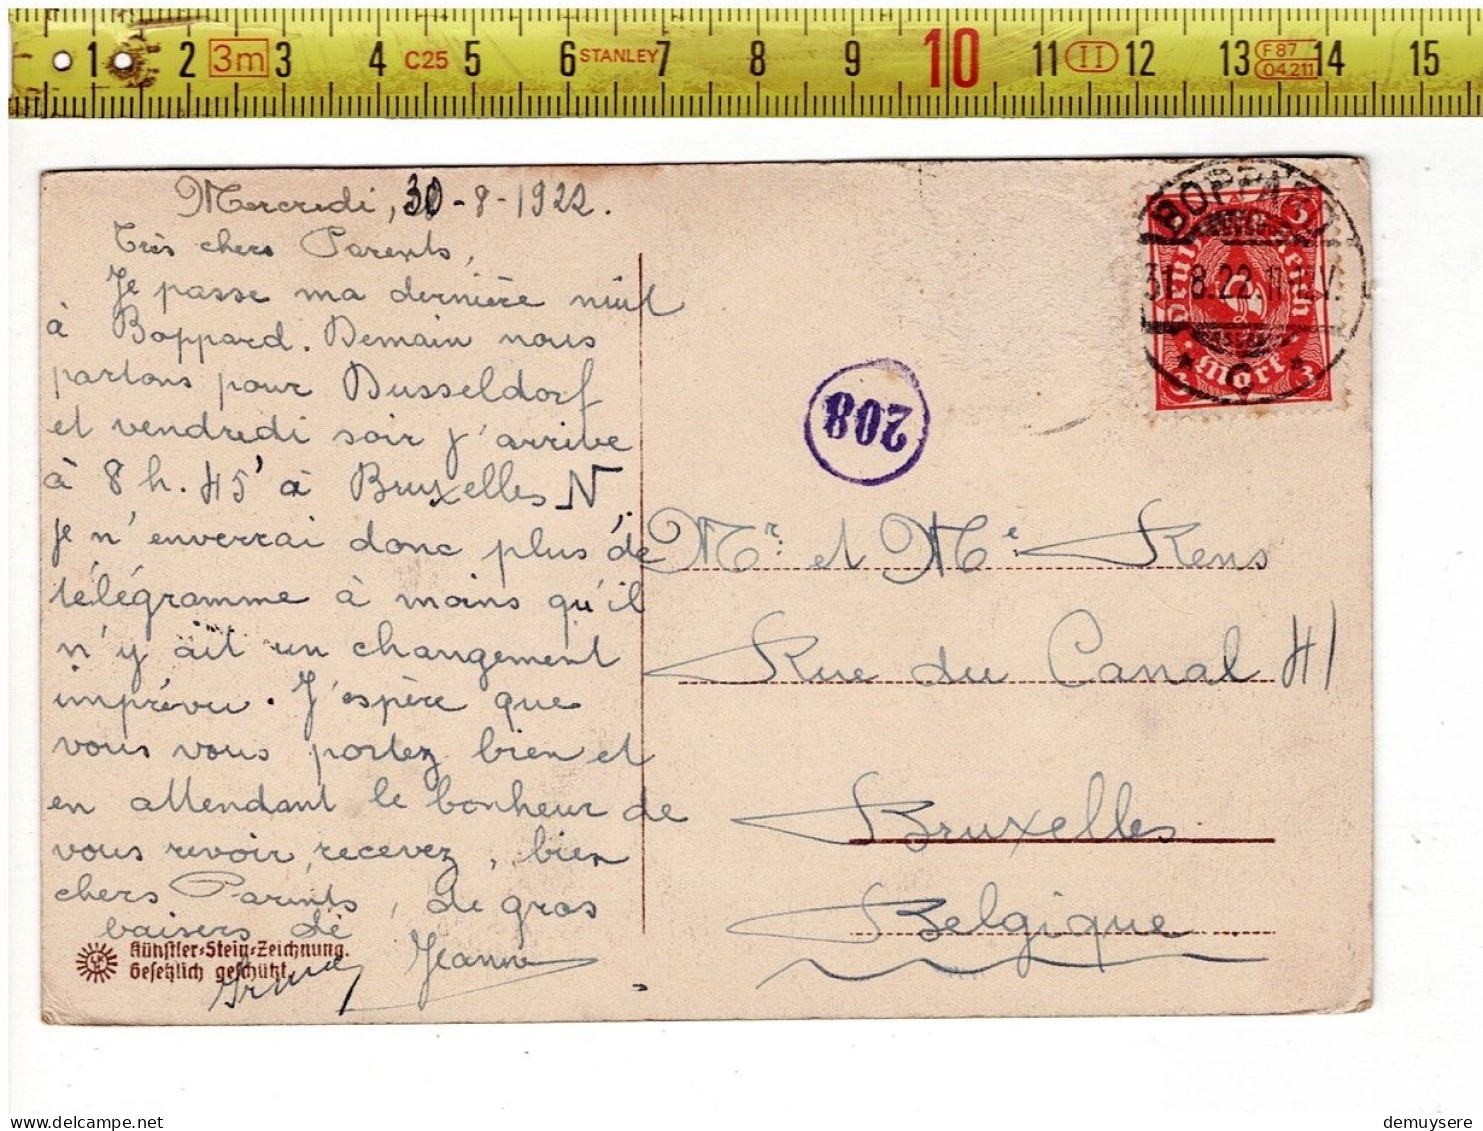 1 2 3m 3 4 C25 5 6 STANLEY 7 8 9 10 11 II 12 13 F 87 04.211 14 15
Mercredi, 30-8-1922.
Très chers Parents,
Je passe ma dernière nuit
à Boppard. Demain nous
partons pour Dusseldorf
et vendredi soir j'arrive
à 8 h. 45' à Bruxelles N
je n'enverrai donc plus de
télégramme à moins qu'il
n'y ait un changement
imprévu. J'espère que
vous vous portez bien et
en attendant le bonheur de
vous revoir, recevez, bien
chers Parents, de gros
baisers de
Jeanne
Künstler-Stein-Zeichnung.
Gesetzlich geschützt.
BOPPARD
31.8.22.11-12V.
3 3
Deutsches Reich
3 Mark 3
208
Mr. et Me. Kens
Rue du Canal 41
Bruxelles
Belgique
demuysere